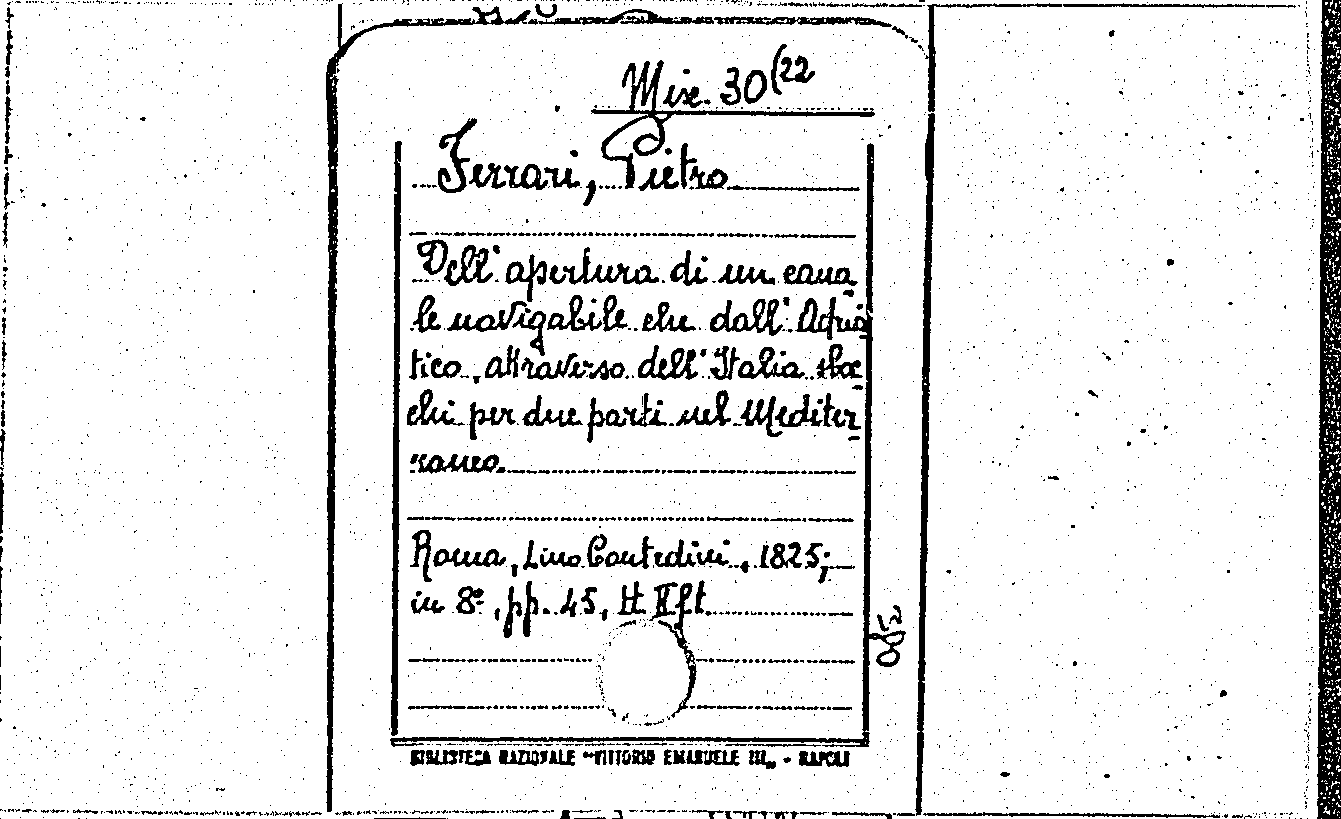 Misc. 30(22
Ferrari, Pietro
Dell'apertura di un cana-
le navigabile che dall'Adria
tico, attraverso dell'Italia sboc-
chi per due parti nel Mediter-
raneo.
Roma, Lino Contedini, 1825;
in 8º, pp. 45, tt. II ft.
BIBLIOTECA NAZIONALE "VITTORIO EMANUELE III„ - NAPOLI